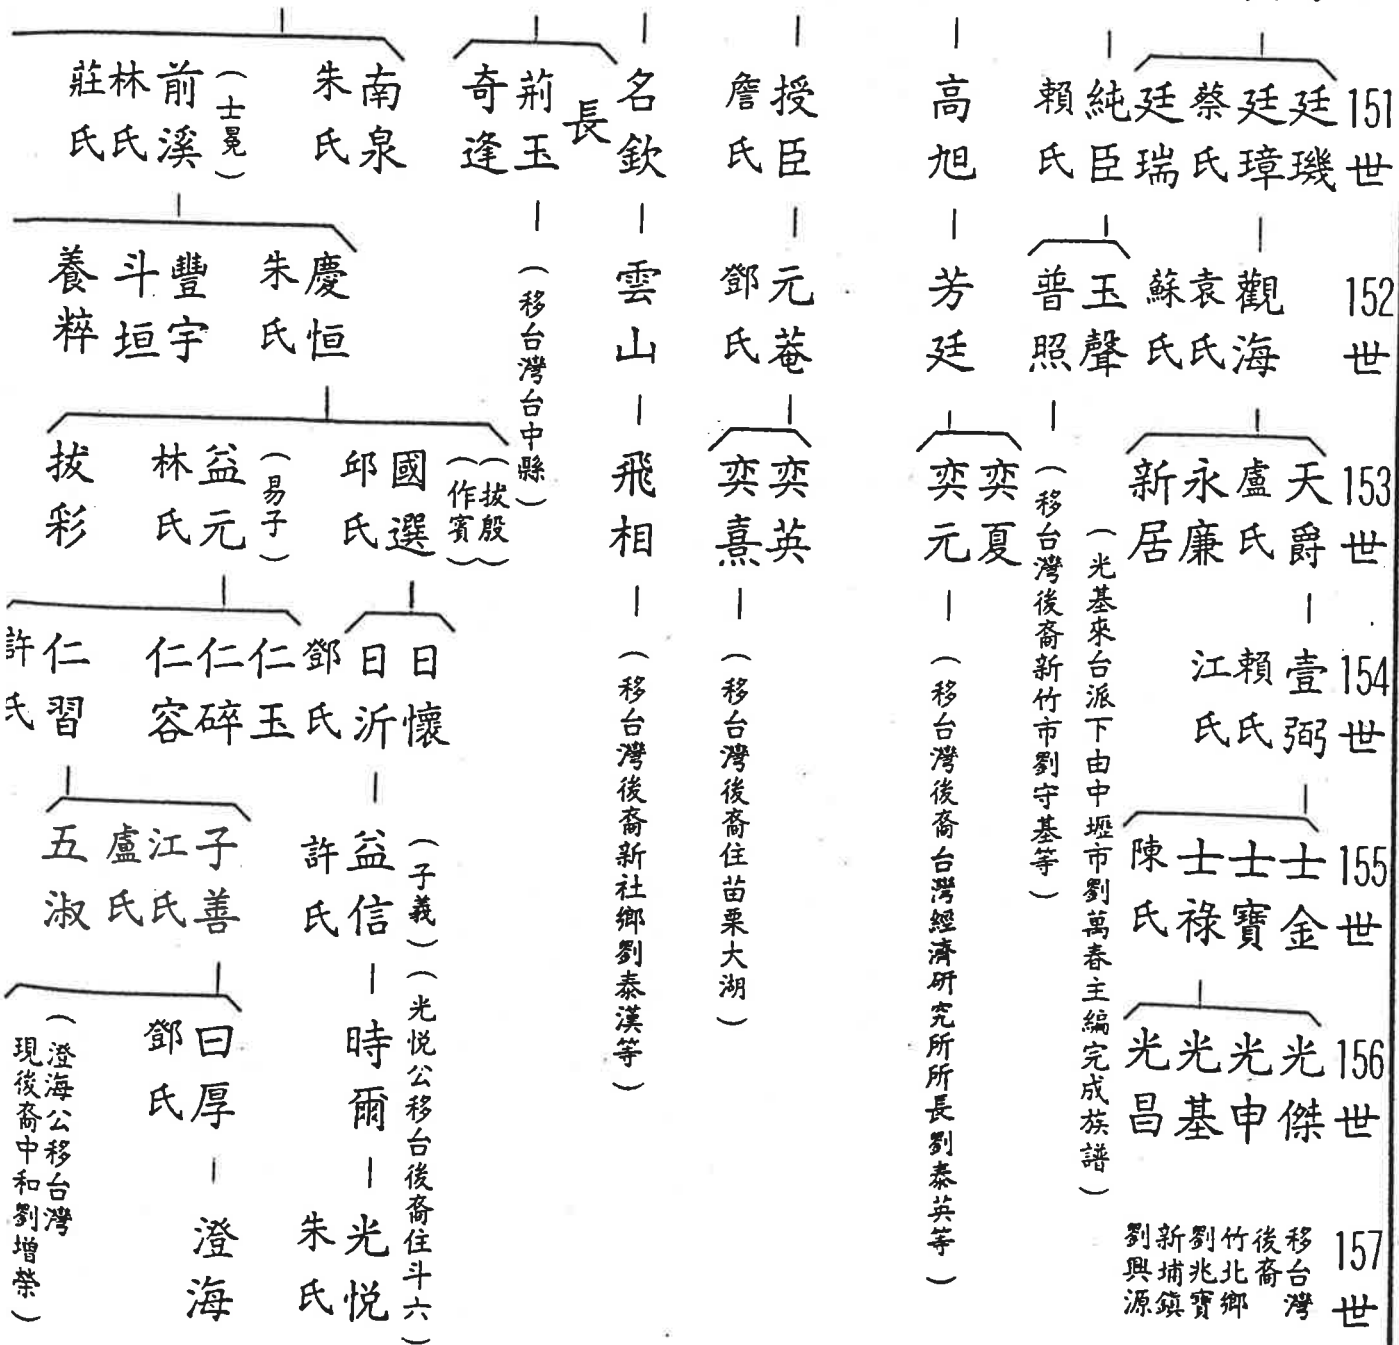 151世
廷璣
廷璋
蔡氏
廷瑞
純臣
賴氏
高旭
授臣
詹氏
名欽
長
荊玉
奇逢
南泉
朱氏
(士冕)
前溪
林氏
莊氏
152世
觀海
袁氏
蘇氏
玉聲
普照
芳廷
元菴
鄧氏
雲山
(移台灣台中縣)
慶恒
朱氏
豐宇
斗垣
養粹
153世
天爵
盧氏
永廉
新居
(光基來台派下由中壢市劉萬春主編完成族譜)
(移台灣後裔新竹市劉守基等)
奕夏
奕元
奕英
奕熹
飛相
(拔殷)
(作賓)
國選
邱氏
(易子)
益元
林氏
拔彩
154世
壹弼
賴氏
江氏
(移台灣後裔台灣經濟研究所所長劉泰英等)
(移台灣後裔住苗栗大湖)
(移台灣後裔新社鄉劉泰漢等)
日懷
日沂
鄧氏
仁玉
仁碎
仁容
仁習
許氏
155世
士金
士寶
士祿
陳氏
(子義)
益信
許氏
子善
江氏
盧氏
五淑
156世
光傑
光申
光基
光昌
(光悅公移台後裔住斗六)
時爾
日厚
鄧氏
(澄海公移台灣
現後裔中和劉增榮)
157世
移台灣
後裔
竹北鄉
劉兆寶
新埔鎮
劉興源
光悅
朱氏
澄海